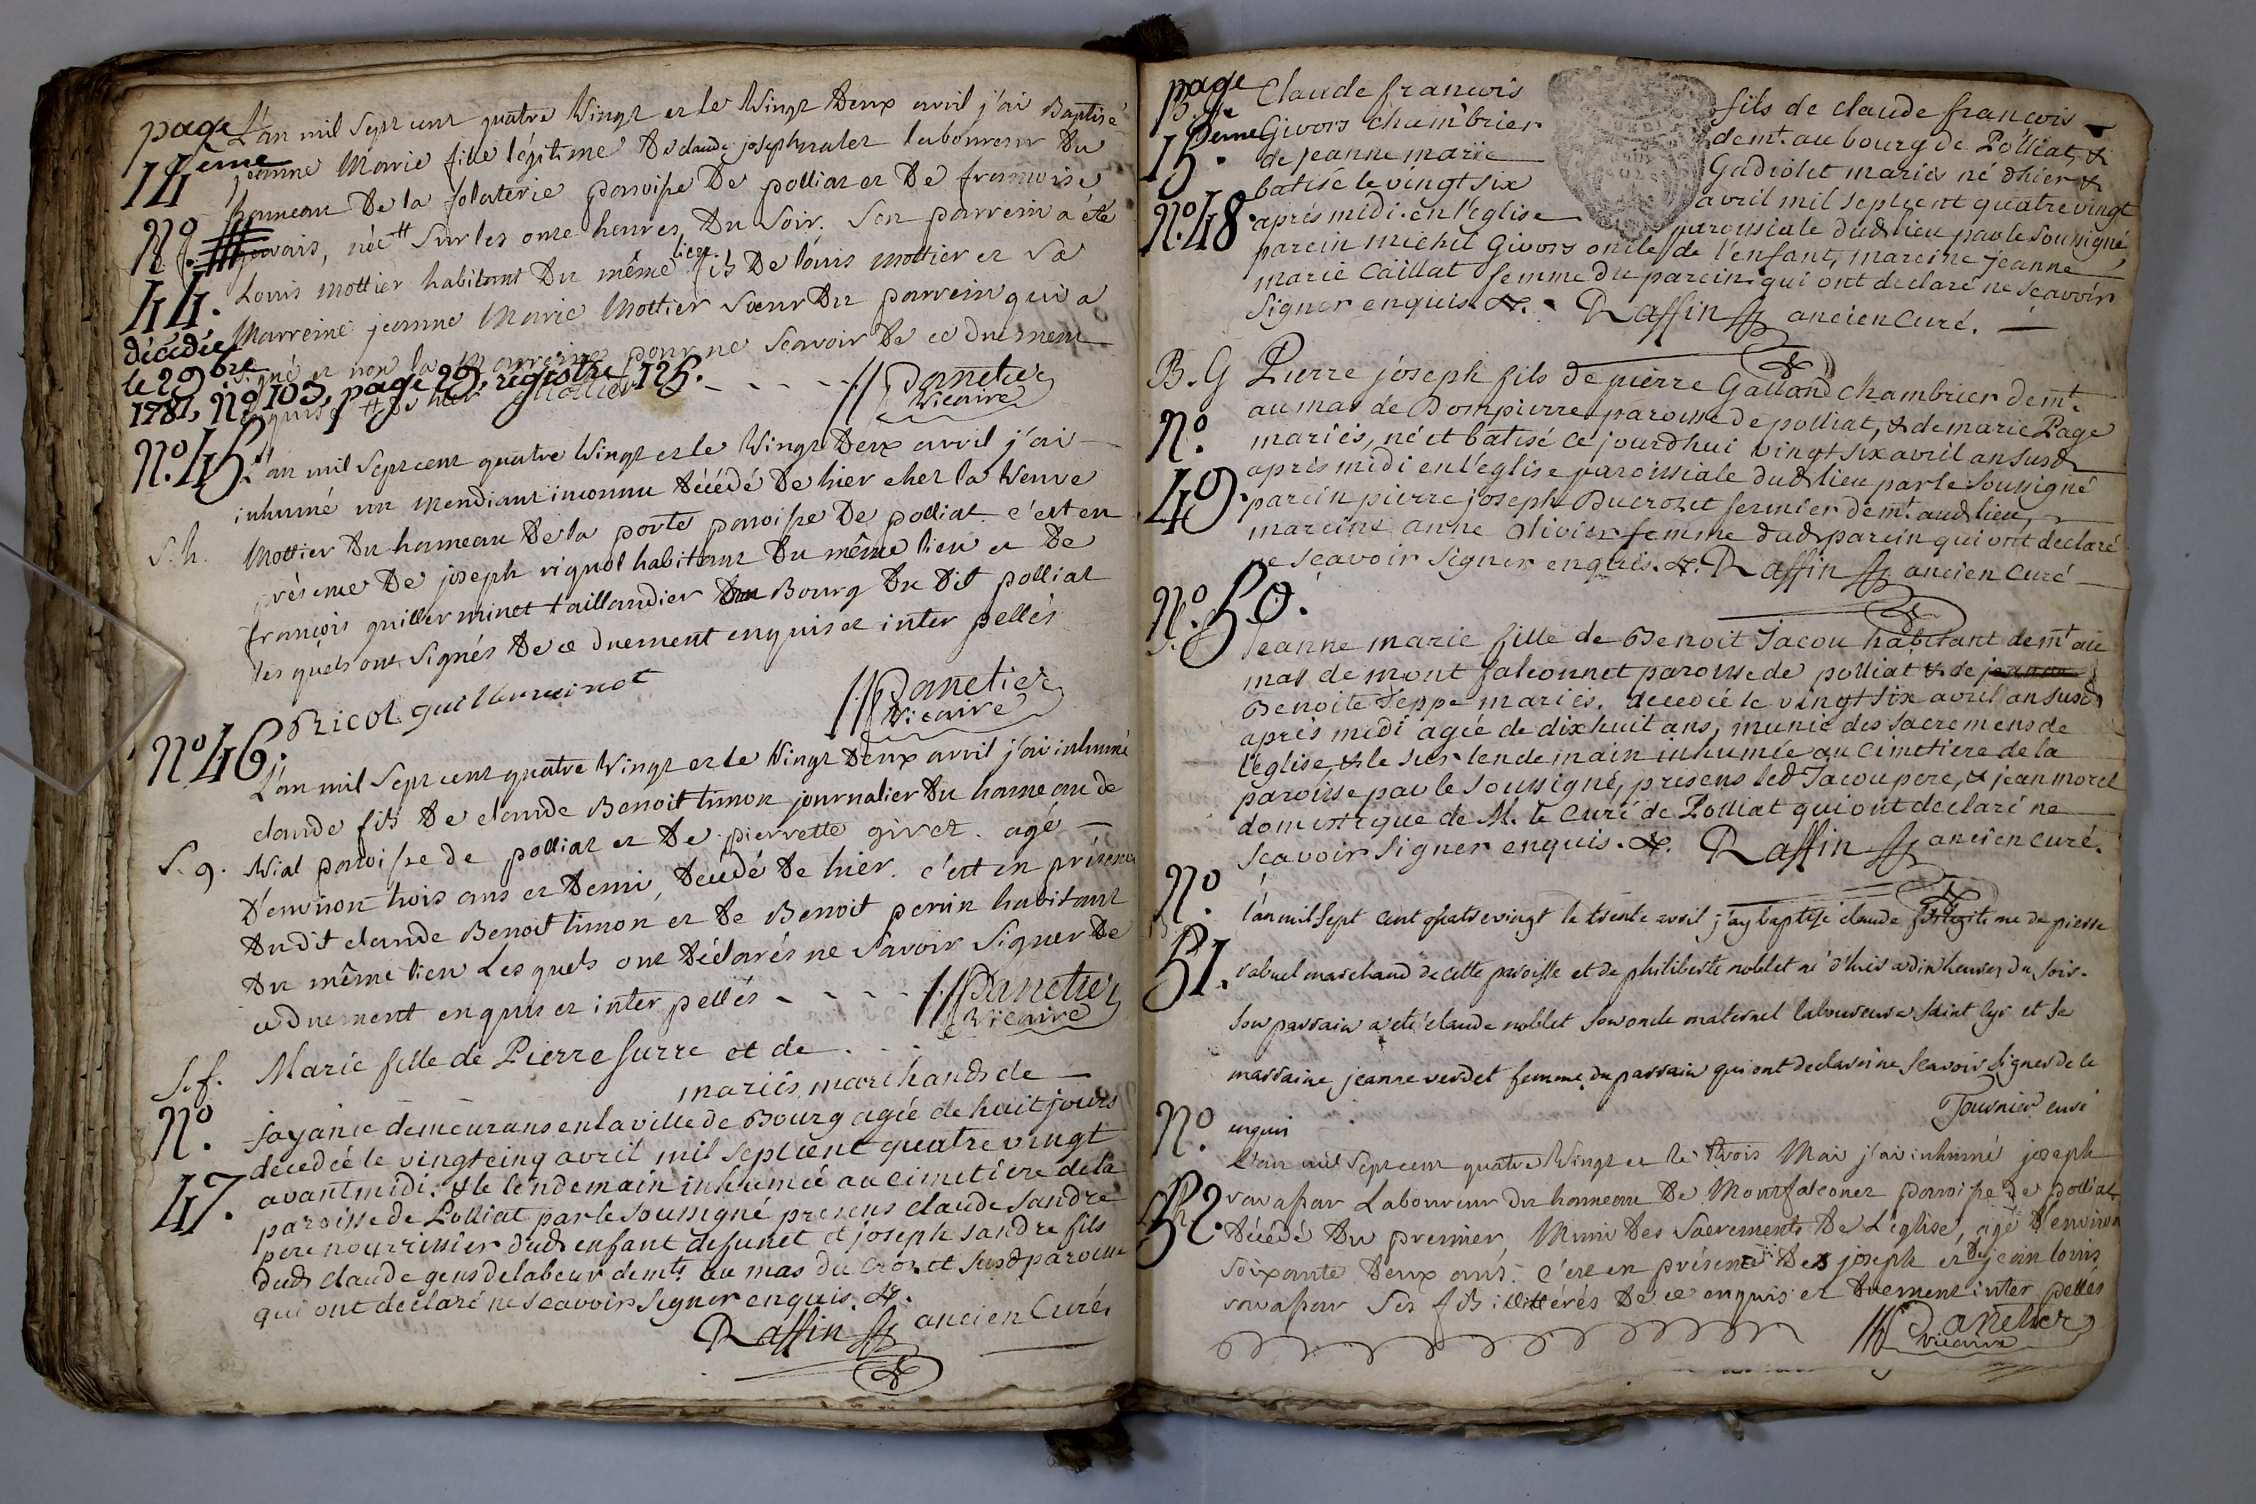 page
14eme
L'an mil Sept cent quatre Vingt et le Vingt Deux avril j'ai Baptisé
jeanne Marie fille légitime De claude joseph laboureur Du
hameau De la folaterie paroisse De polliat et De francoise
gervais, née # Sur les onze heures Du Soir. Son parrein a été
N.o
44.
Louis mottier habitant Du même lieu fils De louis mottier et Sa
Marreine jeanne Marie Mottier Sœur Du parrein qui a
signé et non la Marreine pour ne Scavoir De ce Duement
enquise # d'hier Mottier
décédée
le 29 bre
1781, N.o 103, page 29, régistre 125.
Panetier
Vicaire
N.o 45.
L'an mil Sept cent quatre Vingt et le Vingt Deux avril j'ai
inhumé un mendiant inconnu Décédé De hier chez la Veuve
S. h.
Mottier Du hameau De la porte paroisse De polliat c'est en
présence De joseph rignol habitant Du même lieu et De
françois guillerminet taillandier Du Bourg Du Dit polliat
les quels ont Signés De ce Duement enquis et inter pellés
Ricol guillerminet
Panetier
Vicaire
N.o 46.
L'an mil Sept cent quatre Vingt et le Vingt Deux avril j'ai inhumé
claude fils De claude Benoit timon journalier Du hameau de
S. g.
Vial paroisse de polliat et De pierrette givet. agé
D'environ trois ans et Demi, Décédé De hier. c'est en présence
Du dit claude Benoit timon et De Benoit perrin habitant
Du même lieu Les quels ont Déclarés ne Savoir Signer De
ce Duement enquis et inter pellés
Panetier
Vicaire
S. f.
Marie fille de Pierre surre et de . . .
mariés, marchands de
N.o
47.
fayance demeurans en la ville de Bourg agée de huit jours
décedée le vingt cinq avril mil sept cent quatre vingt
avant midi. & le lendemain inhumée au cimetiere de la
paroisse de Polliat par le soussigné presens claude Sandre
pere nourrissier dud enfant defunct et joseph Sandre fils
dud claude gens de labeur demts au mas du Crozet susd paroisse
qui ont declaré ne scavoir signer enquis. &.
Raffin ancien Curé,
page
15eme
B. f.
N.o 48.
Claude francois fils de claude francois
Givors chambrier demt. au bourg de Polliat, &
de jeanne marie Gadiolet mariés né d'hier &
batisé le vingt six avril mil sept cent quatre vingt
après midi. en l'eglise paroissiale dud lieu par le soussigné
parein michel Givors oncle de l'enfant, mareine jeanne
marie Caillat femme du parein qui ont declaré ne scavoir
Signer enquis. &. Raffin ancien Curé.
B. G
N.o
49.
Pierre joseph fils de pierre Galland chambrier demt.
au mas de Dompierre paroisse de polliat, & de marie Page
mariés, né et batisé ce jourdhui vingt six avril an susd
après midi en l'eglise paroissiale dud lieu par le soussigné
parein pierre joseph Ducrozet fermier demt. aud lieu,
mareine anne olivier femme dud parein qui ont declaré
ne scavoir signer enquis. &. Raffin ancien Curé
N.o 50.
S. f
Jeanne marie fille de Benoit Jacou habitant demt au
mas de mont falconnet paroisse de polliat & de
Benoite Seppe mariés. decedée le vingt six avril an susd
après midi agée de dixhuit ans, munie des sacremens de
l'eglise, & le sur lendemain inhumée au cimetiere de la
paroisse par le soussigné, presens led Jacou pere, & jean morel
domestique de M. le Curé de Polliat qui ont declaré ne
scavoir signer enquis. &. Raffin ancien curé.
N.o
51.
l'an mil Sept cent quatre vingt le trente avril j'ay baptisé claude fils legitime de pierre
vabuel marchand de cette paroisse et de philiberte noblet né d'hier a dix heures du soir.
Son parrain a eté claude noblet son oncle maternel laboureur a saint Cyr et Sa
marraine jeanne verdet femme du parrain qui ont declaré ne Scavoir signer de ce
enquis
Tournier curé
N.o
52.
L'an mil Sept cent quatre Vingt et le trois Mai j'ai inhumé joseph
ravassour Laboureur du hameau De Montfalconet paroisse De polliat
Décédé Du premier. Muni Des Sacrements De L'église, agé D'environ
Soixante Deux ans. c'est en présence Des joseph et De jean louis
ravassour Ses fils illittérés De ce enquis et Duement inter pellés
Panetier
vicaire